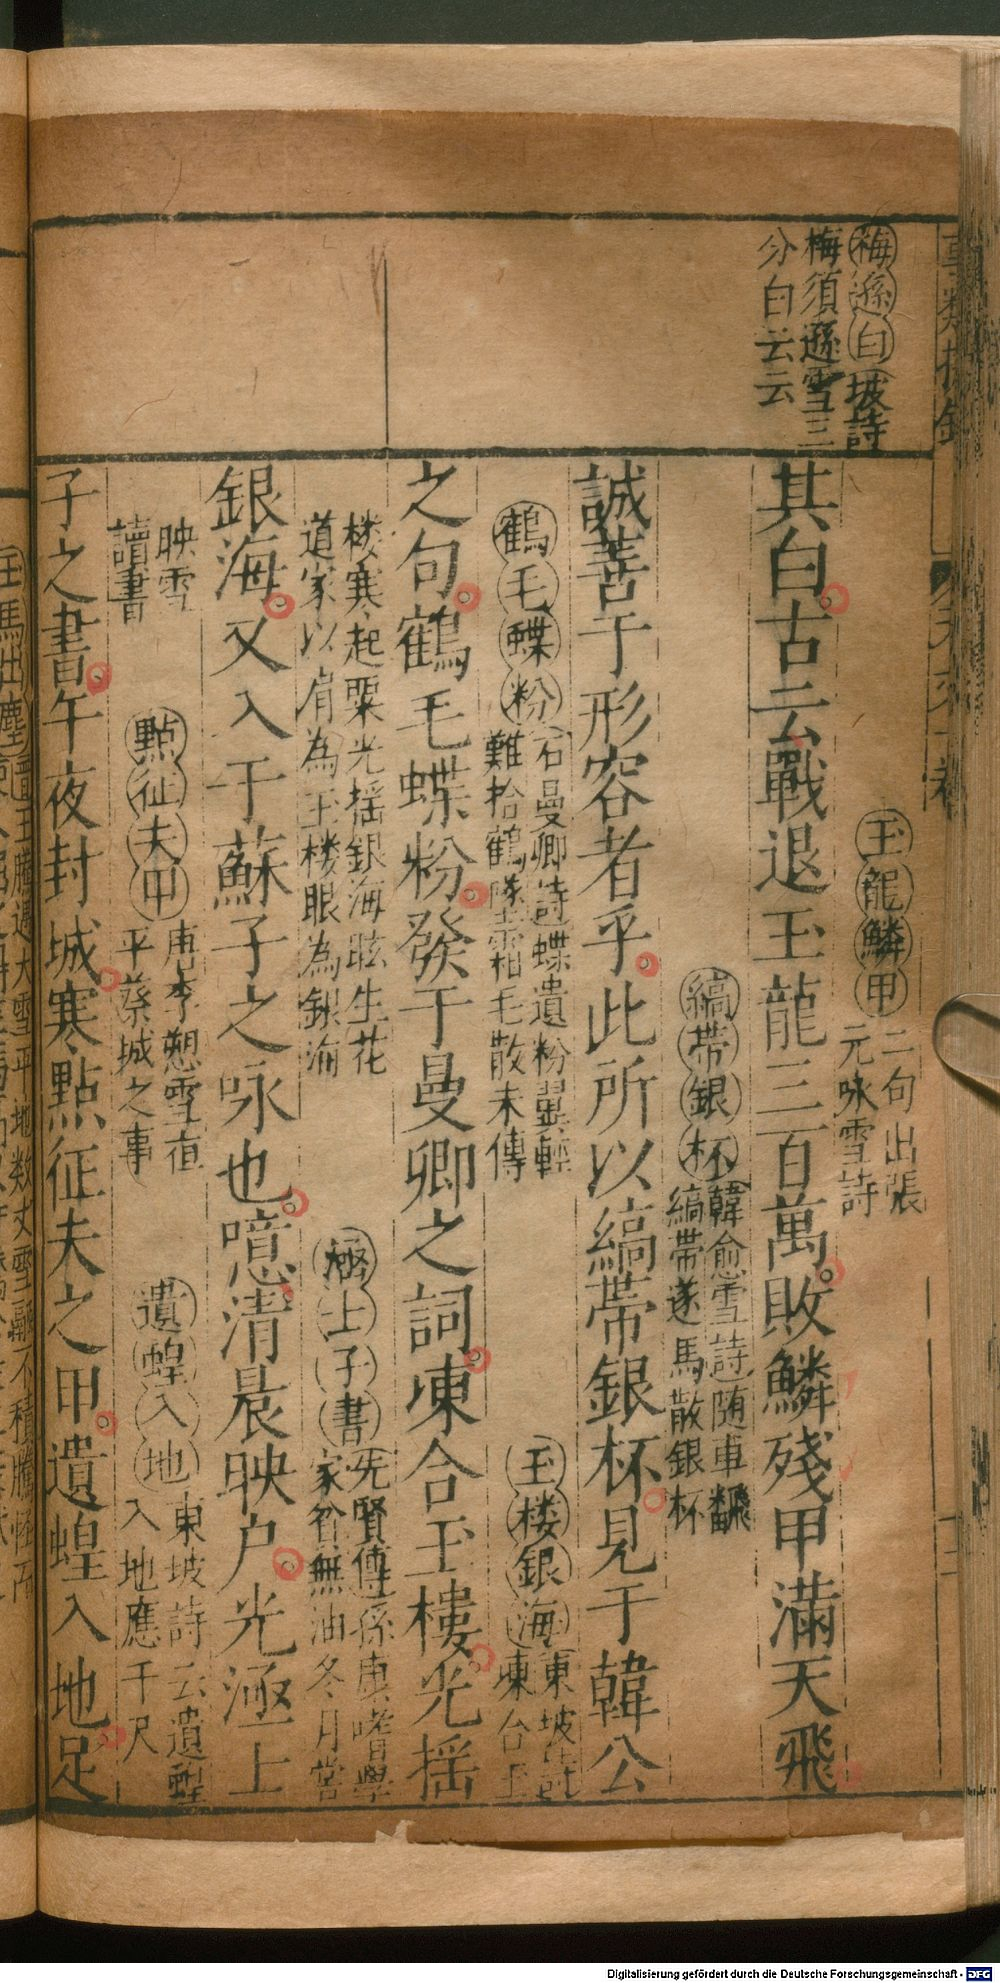 梅遜白坡詩
梅須遜雪三
分白云云
玉龍鱗甲二句出張
元咏雪詩
其白古云戰退玉龍三百萬敗鱗殘甲滿天飛
縞帶銀杯韓愈雪詩随車翻
縞帶遂馬散銀杯
誠善于形容者乎此所以縞帶銀杯見于韓公
鶴毛蝶粉石曼卿詩蝶遺粉翼輕
難拾鶴墜霜毛散未傳
玉楼銀海東坡詩
凍合玉
之句鶴毛蝶粉發于曼卿之詞凍合玉樓光揺
楼寒起粟光揺銀海眩生花
道家以肩為玉楼眼為銀海
極士子書先賢傳孫庚嗜學
家貧無油冬月嘗
銀海又入于蘇子之咏也噫清晨映户光極士
映雪
讀書
點征夫甲唐李愬雪夜
平蔡城之事
遺蝗入地東坡詩云遺蝗
入地應千尺
子之書午夜封城寒點征夫之甲遺蝗入地足
Digitalisierung gefördert durch die Deutsche Forschungsgemeinschaft - DFG